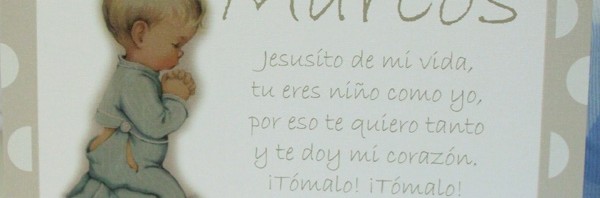 Marcos
Jesusito de mi vida,
tu eres niño como yo,
por eso te quiero tanto
y te doy mi corazón.
¡Tómalo! ¡Tómalo!